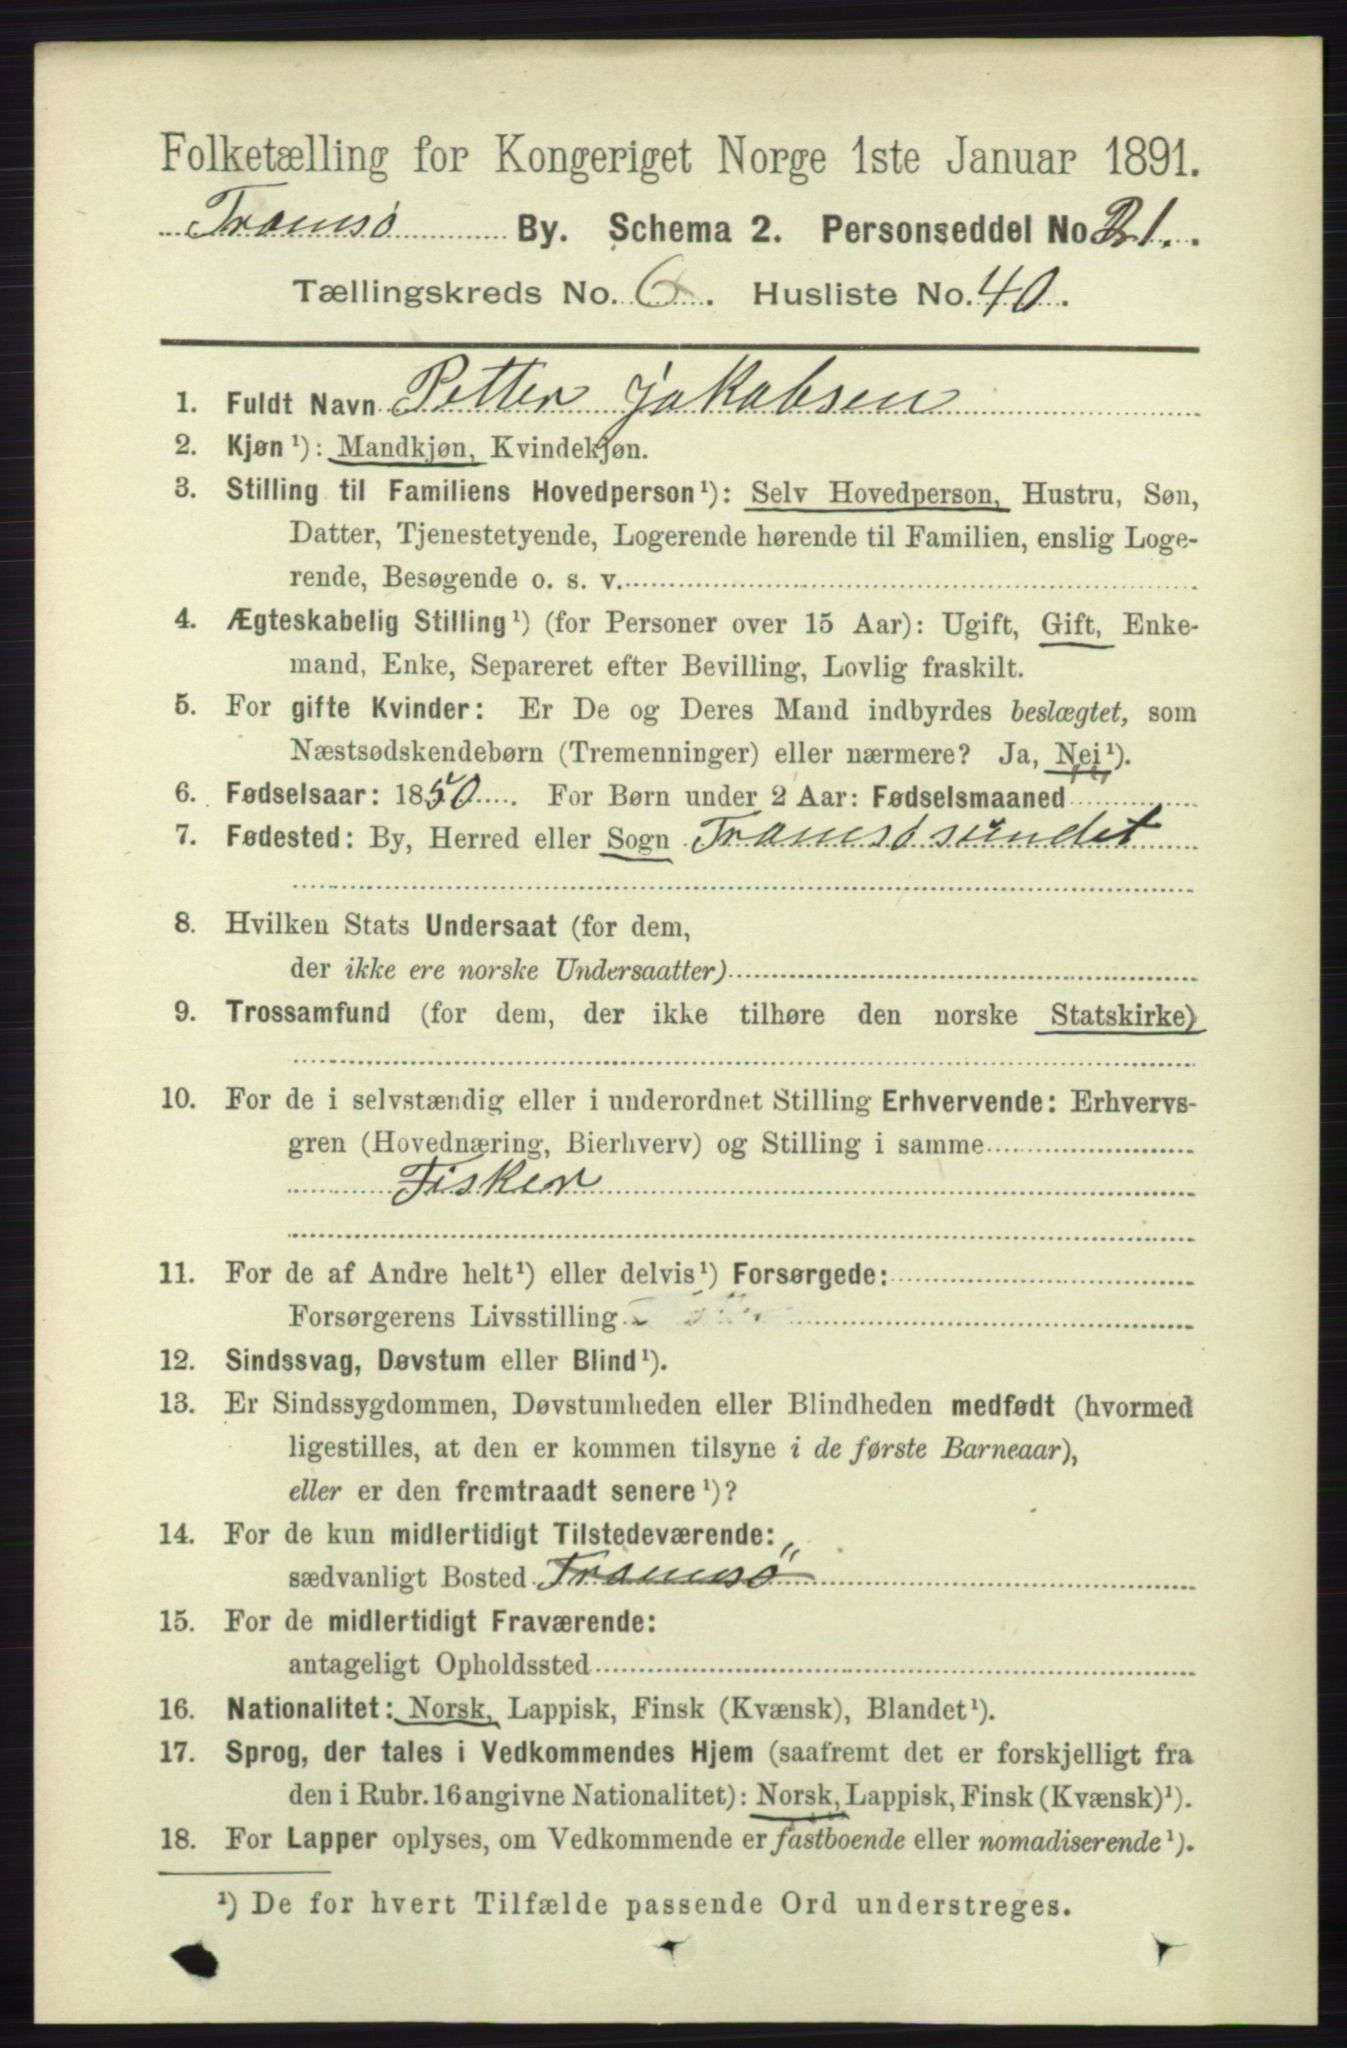 Folketælling for Kongeriget Norge 1ste Januar 1891.
Tromsø By. Schema 2. Personseddel No. 21.
Tællingskreds No. 6. Husliste No. 40.
1. Fuldt Navn Petter Jakobsen
2. Kjøn¹): Mandkjøn, Kvindekjøn.
3. Stilling til Familiens Hovedperson¹): Selv Hovedperson, Hustru, Søn,
Datter, Tjenestetyende, Logerende hørende til Familien, enslig Loge-
rende, Besøgende o. s. v.
4. Ægteskabelig Stilling¹) (for Personer over 15 Aar): Ugift, Gift, Enke-
mand, Enke, Separeret efter Bevilling, Lovlig fraskilt.
5. For gifte Kvinder: Er De og Deres Mand indbyrdes beslægtet, som
Næstsødskendebørn (Tremenninger) eller nærmere? Ja, Nei¹).
6. Fødselsaar: 1850. For Børn under 2 Aar: Fødselsmaaned
7. Fødested: By, Herred eller Sogn Tromsøsundet
8. Hvilken Stats Undersaat (for dem,
der ikke ere norske Undersaatter)
9. Trossamfund (for dem, der ikke tilhøre den norske Statskirke)
10. For de i selvstændig eller i underordnet Stilling Erhvervende: Erhvervs-
gren (Hovednæring, Bierhverv) og Stilling i samme
Fisker
11. For de af Andre helt¹) eller delvis¹) Forsørgede:
Forsørgerens Livsstilling
12. Sindssvag, Døvstum eller Blind¹).
13. Er Sindssygdommen, Døvstumheden eller Blindheden medfødt (hvormed
ligestilles, at den er kommen tilsyne i de første Barneaar),
eller er den fremtraadt senere¹)?
14. For de kun midlertidigt Tilstedeværende: "
sædvanligt Bosted Tromsø
15. For de midlertidigt Fraværende:
antageligt Opholdssted
16. Nationalitet: Norsk, Lappisk, Finsk (Kvænsk), Blandet¹).
17. Sprog, der tales i Vedkommendes Hjem (saafremt det er forskjelligt fra
den i Rubr. 16 angivne Nationalitet): Norsk, Lappisk, Finsk (Kvænsk)¹).
18. For Lapper oplyses, om Vedkommende er fastboende eller nomadiserende¹).
¹) De for hvert Tilfælde passende Ord understreges.